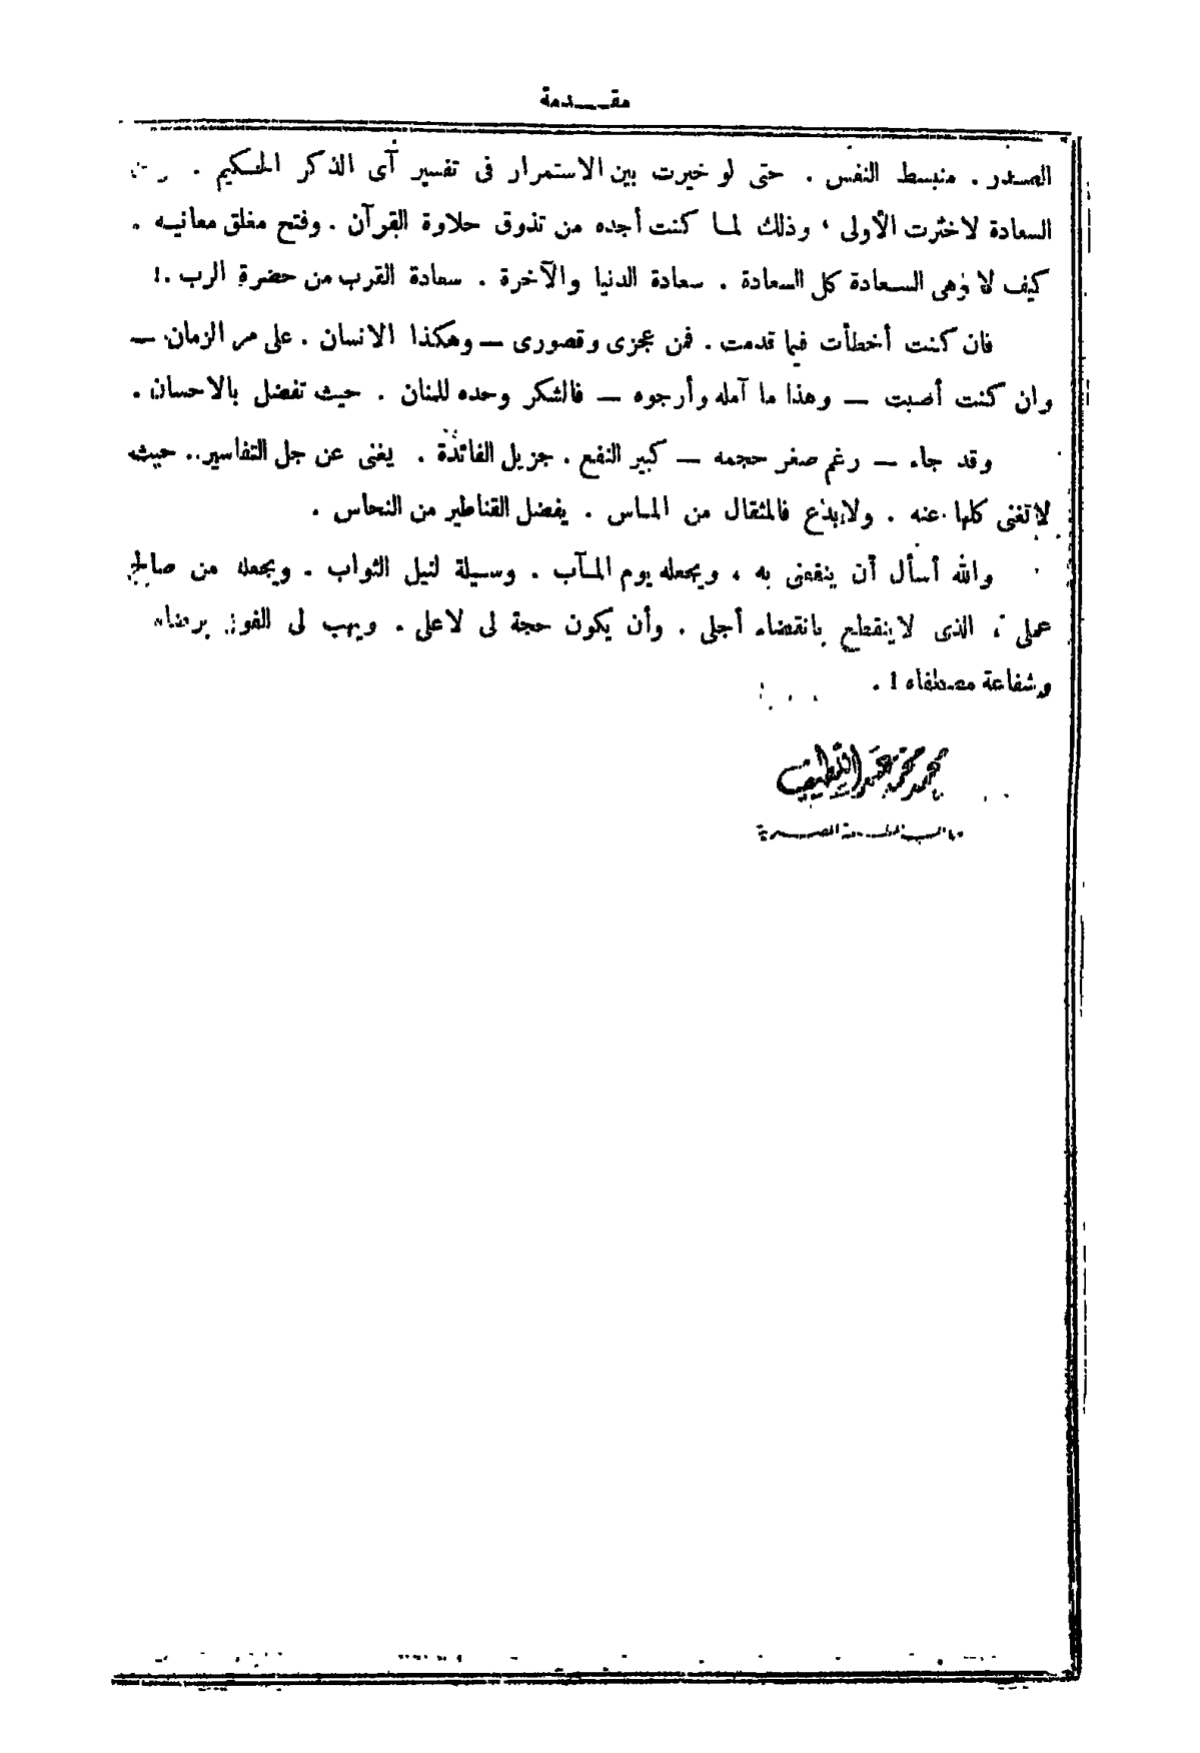 مقـــدمة
الصدر . منبسط النفس . حتى لو خيرت بين الاستمرار فى تفسير آى الذكر الحكيم .
السعادة لاخترت الأولى ، وذلك لمـا كنت أجده من تذوق حلاوة القرآن . وفتح مغلق معانيه .
كيف لا وهى السعادة كل السعادة . سعادة الدنيا والآخرة . سعادة القرب من حضرة الرب .!
فان كنت أخطأت فيما قدمت . فمن عجزى وقصورى — وهكذا الانسان . على مر الزمان —
وان كنت أصبت — وهذا ما آمله وأرجوه — فالشكر وحده للمنان . حيث تفضل بالاحسان .
وقد جاء — رغم صغر حجمه — كبير النفع . جزيل الفائدة . يغنى عن جل التفاسير .. حيث
لا تغنى كلها عنه . ولا بدع فالمثقال من المـاس . يفضل القناطير من النحاس .
والله أسأل أن ينفعنى به ، ويجعله يوم المـآب . وسيلة لنيل الثواب . ويجعله من صالح
عملى ، الذى لا ينقطع بانقضاء أجلى . وأن يكون حجة لى لا على . ويهب لى الفوز برضاه
وشفاعة مصطفاه ! .
محمد محمد عبد اللطيف